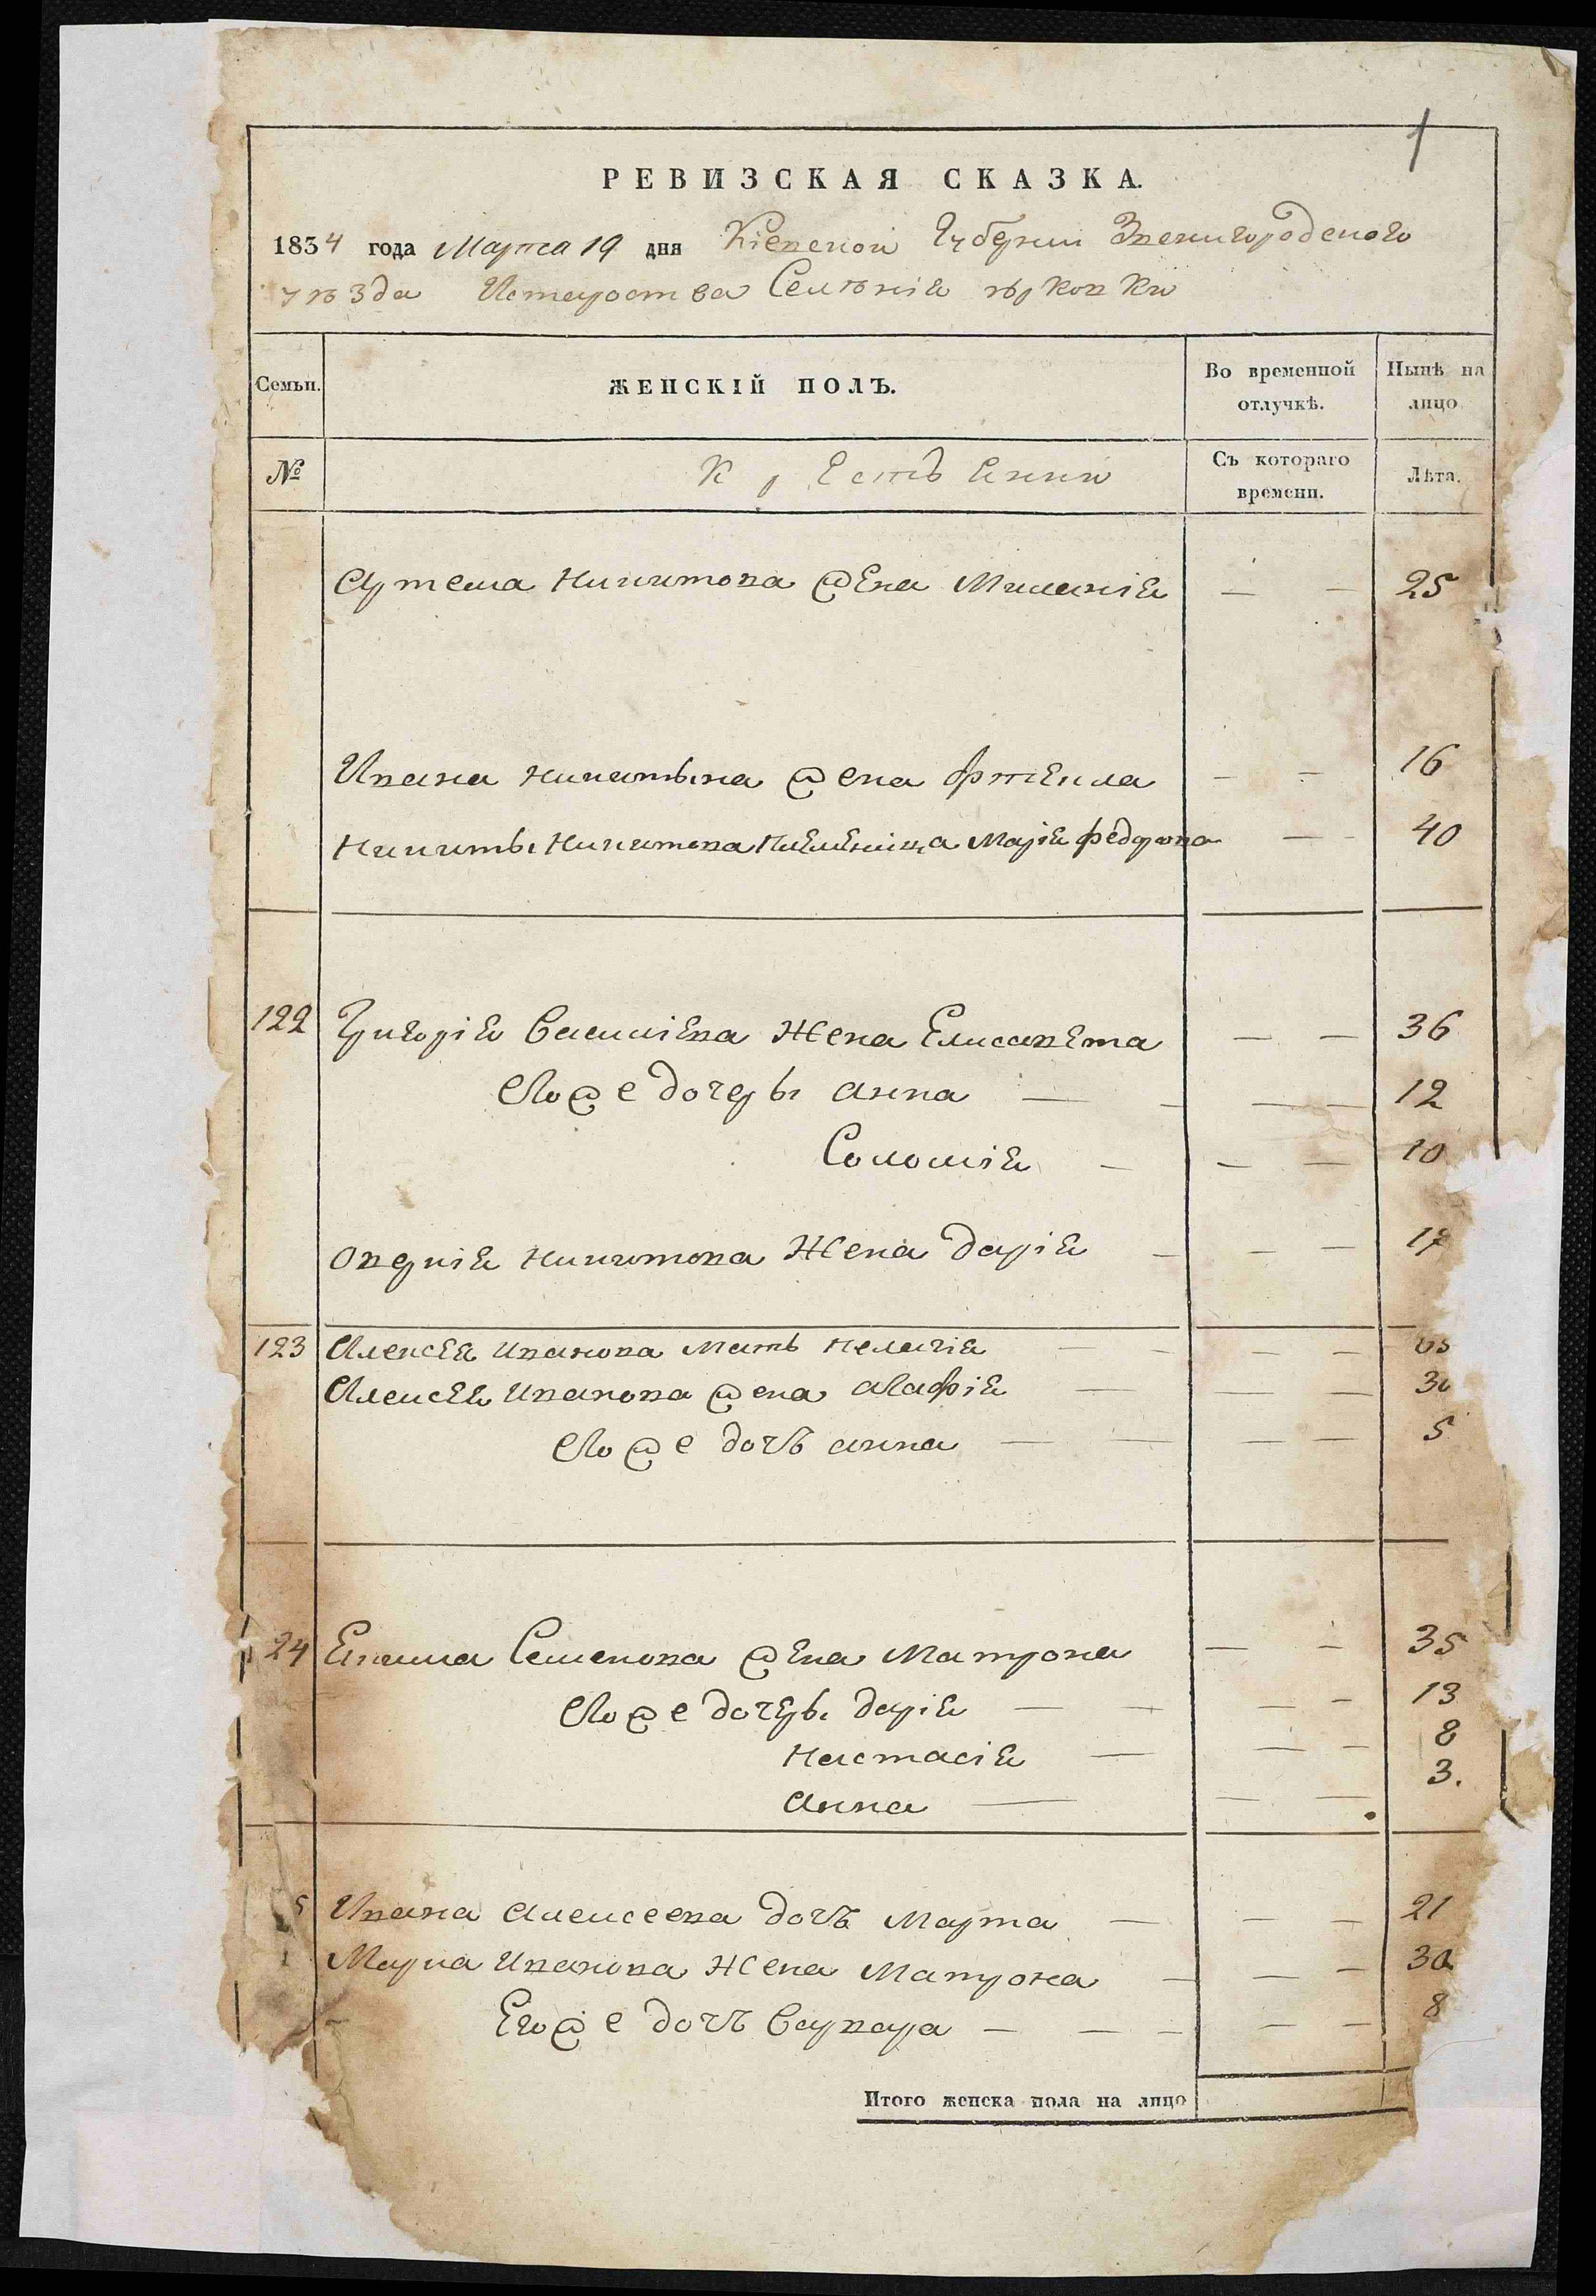 1
РЕВИЗСКАЯ СКАЗКА.
1834 года Марта 19 дня Кіевской Губернии Звенигородского
уѣзда Истароства Селѣнія
Семьи. ЖЕНСКІЙ ПОЛЪ. Во временной отлучкѣ. Нынѣ на лицо
№ Крестьянки Съ котораго времени. Лѣта.
Артема Никитова жена Миланія — — 25
Ивана Никитына жена — — 16
Никиты Никитова племеница Марія Федорова — 40
122 Григорія Василіева Жена Елисавета — — 36
Его же дочеры анна — — — — 12
Соломія — — — 10
Оверкія Никитова Жена Дарія — — — 17
123 Алексея Иванова Мать Пелагія — — — —
Алексея Иванова жена агафія — — — 30
Его же дочъ анна — — — — 5
24 Екима Семенова жена Матрона — — 35
Его же дочеры Дарія — — — — 13
Настасія — — — 8
Анна — — — 3.
5 Ивана Алексеева дочъ Марта — — — 21
Марка Иванова Жена Матрона — — — 30
Его же дочъ Варвара — — — — — 8
Итого женска пола на лицо